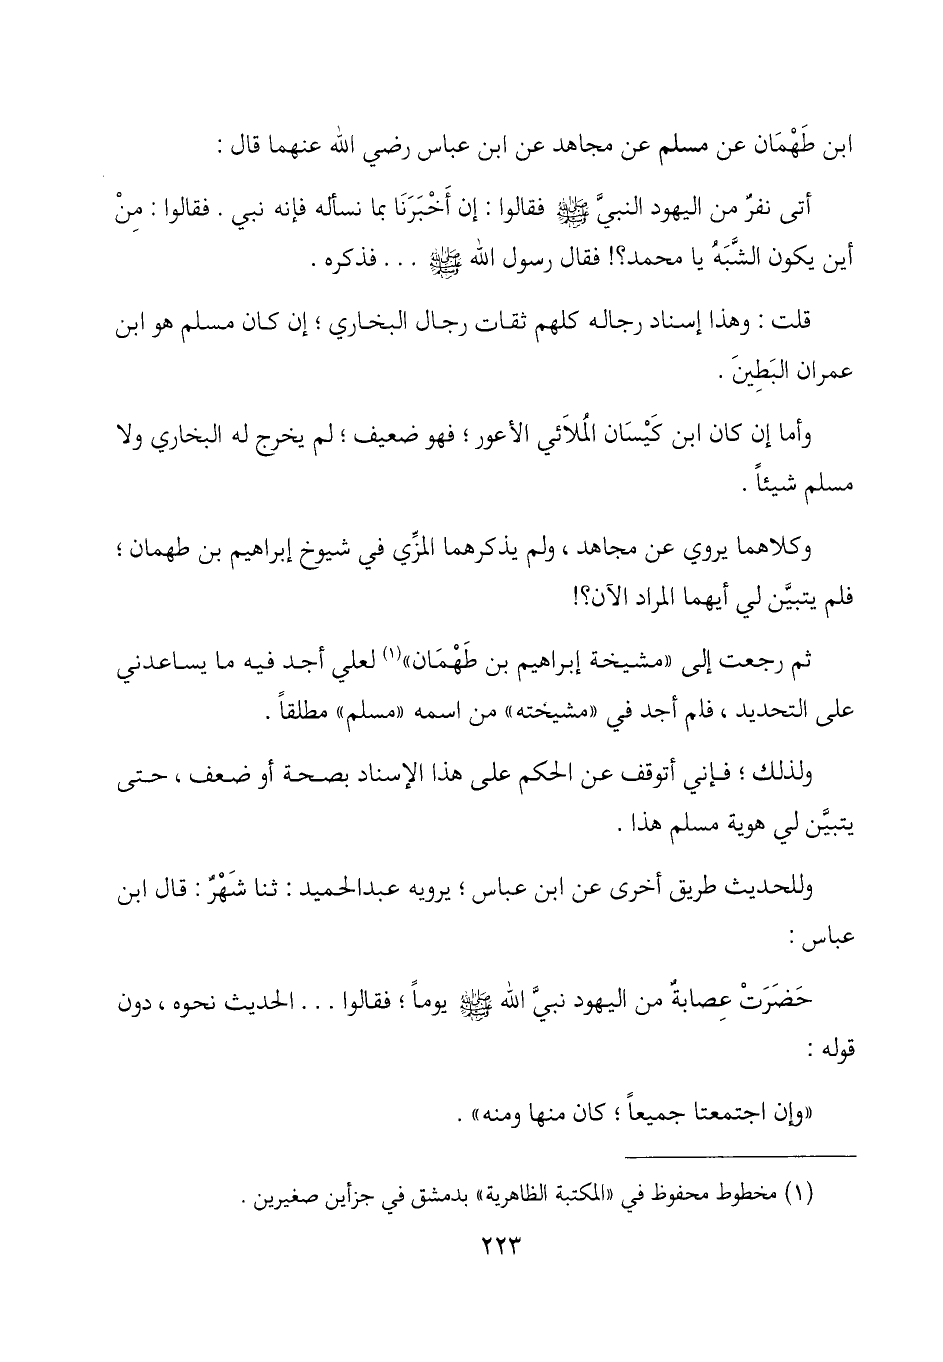 ابن طَهْمَان عن مسلم عن مجاهد عن ابن عباس رضي الله عنهما قال :
أتى نفرٌ من اليهود النبيَّ ﷺ فقالوا : إن أَخْبَرَنَا بما نسأله فإنه نبي . فقالوا : مِنْ
أين يكون الشَّبَهُ يا محمد؟! فقال رسول الله ﷺ . . . فذكره .
قلت : وهذا إسناد رجاله كلهم ثقات رجال البخاري ؛ إن كان مسلم هو ابن
عمران البَطِينَ .
وأما إن كان ابن كَيْسَان المُلاَئي الأعور ؛ فهو ضعيف ؛ لم يخرج له البخاري ولا
مسلم شيئاً .
وكلاهما يروي عن مجاهد ، ولم يذكرهما المزِّي في شيوخ إبراهيم بن طهمان ؛
فلم يتبيَّن لي أيهما المراد الآن؟!
ثم رجعت إلى «مشيخة إبراهيم بن طَهْمَان»(١) لعلي أجد فيه ما يساعدني
على التحديد ، فلم أجد في «مشيخته» من اسمه «مسلم» مطلقاً .
ولذلك ؛ فإني أتوقف عن الحكم على هذا الإسناد بصحة أو ضعف ، حتى
يتبيَّن لي هوية مسلم هذا .
وللحديث طريق أخرى عن ابن عباس ؛ يرويه عبدالحميد : ثنا شَهْرٌ : قال ابن
عباس :
حَضَرَتْ عِصابةٌ من اليهود نبيَّ الله ﷺ يوماً ؛ فقالوا . . . الحديث نحوه ، دون
قوله :
«وإن اجتمعتا جميعاً ؛ كان منها ومنه» .
(١) مخطوط محفوظ في «المكتبة الظاهرية» بدمشق في جزأين صغيرين .
٢٢٣